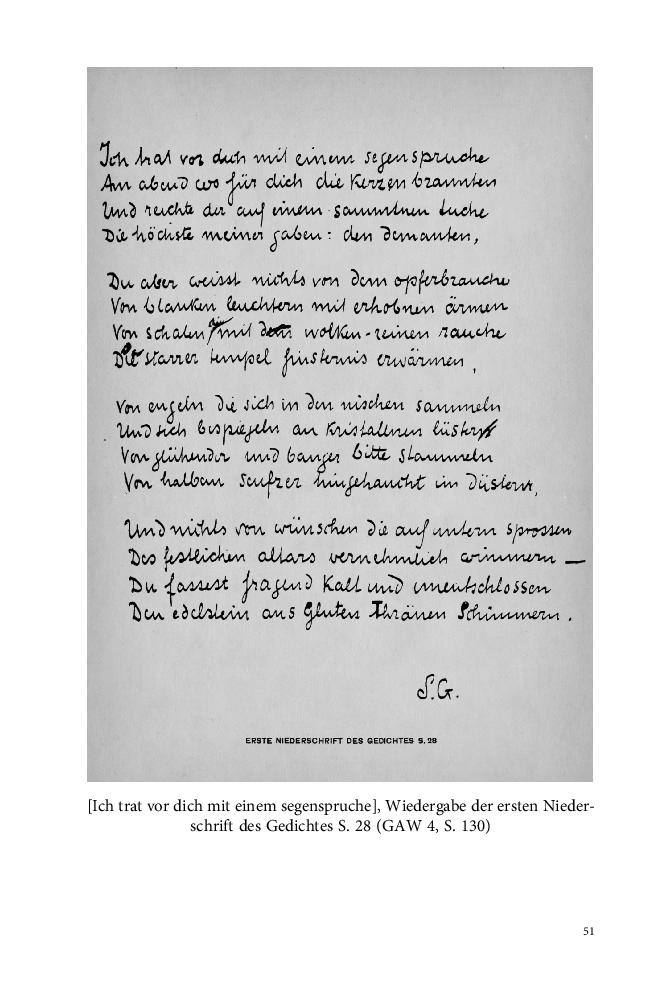 Ich trat vor dich mit einem segenspruche
Am abend wo für dich die kerzen brannten
Und reichte dir auf einem sammtnen tuche
Die höchste meiner gaben: den demanten,
Du aber weisst nichts von dem opferbrauche
Von blanken leuchtern mit erhobnen ärmen
Von schalen mit wolken-reinen rauche
Die starrer tempel finsternis erwärmen,
Von engeln die sich in den nischen sammeln
Und sich bespiegeln an kristallenen lüstern
Von glühender und banger bitte stammeln
Von halben seufzer hingehaucht im düstern,
Und nichts von wünschen die auf untern sprossen
Des festlichen altars vernehmlich wimmern —
Du fassest fragend Kalt und unentschlossen
Den edelstein aus Gluten Thränen Schimmern.
S.G.
ERSTE NIEDERSCHRIFT DES GEDICHTES S. 28
[Ich trat vor dich mit einem segenspruche], Wiedergabe der ersten Nieder-
schrift des Gedichtes S. 28 (GAW 4, S. 130)
51